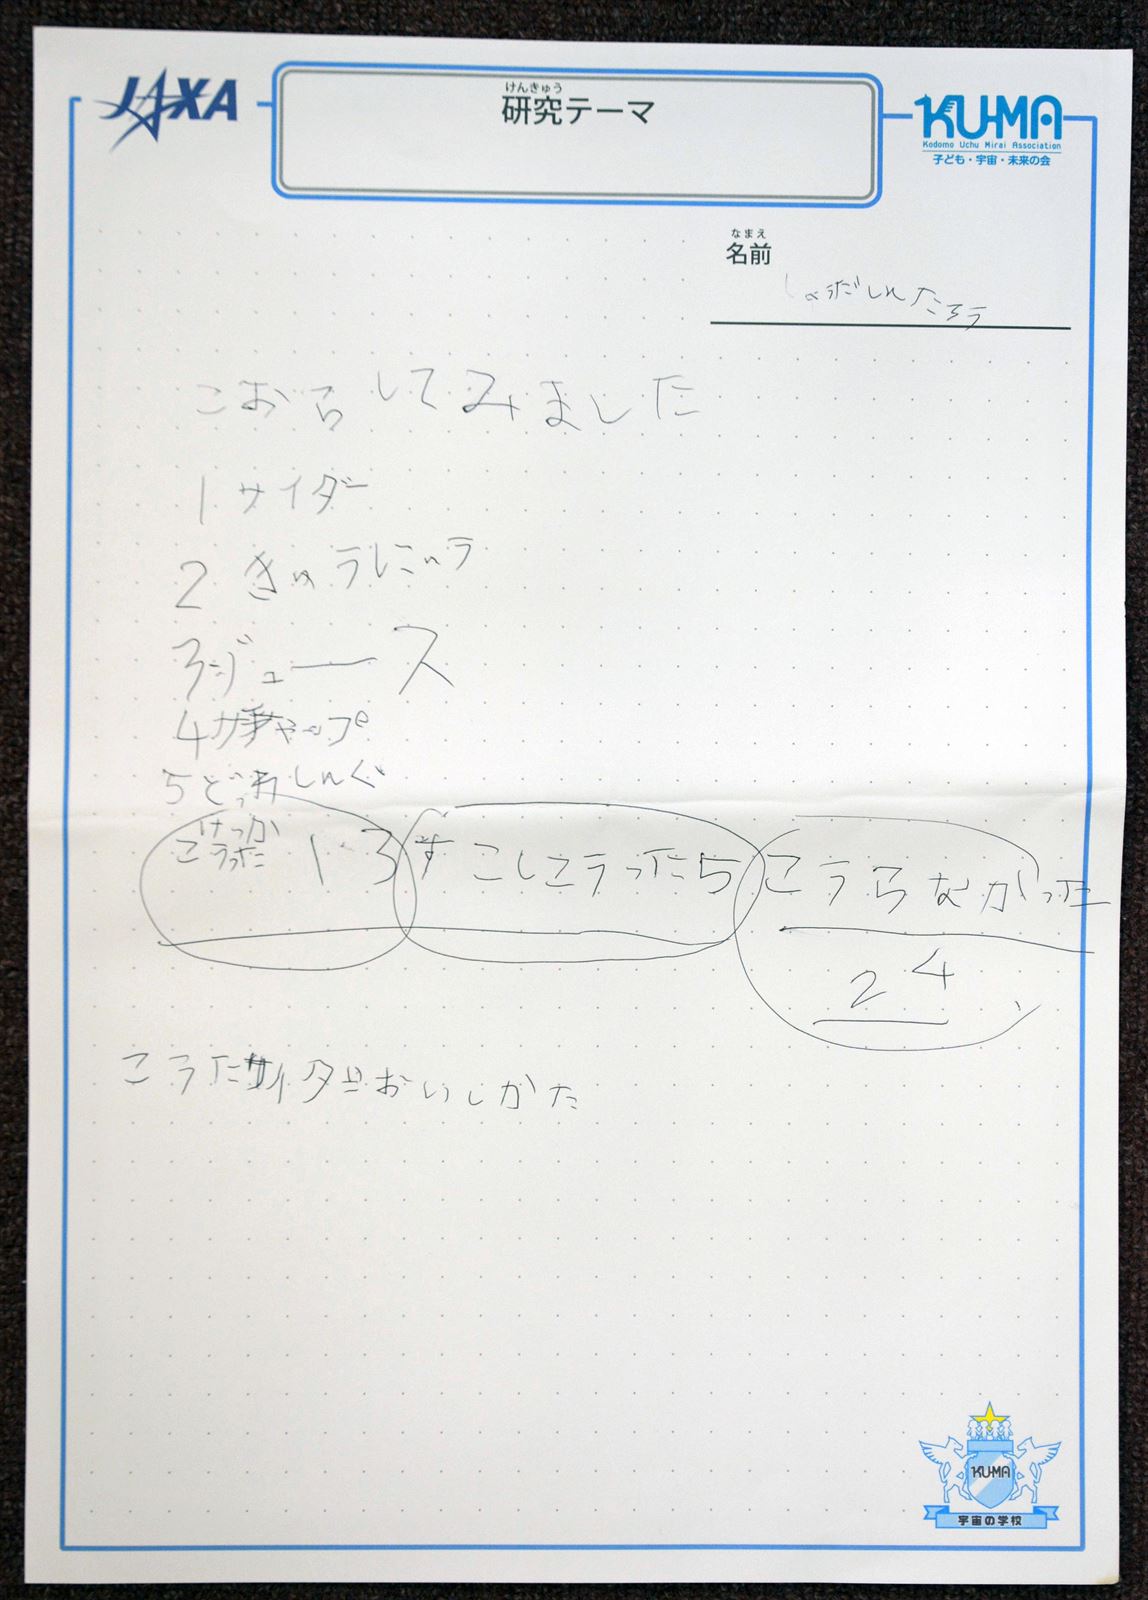 JAXA
けんきゅう
研究テーマ
KU-MA
Kodomo Uchu Mirai Association
子ども・宇宙・未来の会
なまえ
名前
こおらしてみました
1 サイダー
2 きゅうにゅう
3 ジュース
4 ケチャップ
5 どっれしんぐ
けっか
こうった 1 3 すこしこうった5 こうらなかった
2 4
こうたサイダーおいしかた
KU-MA
宇宙の学校